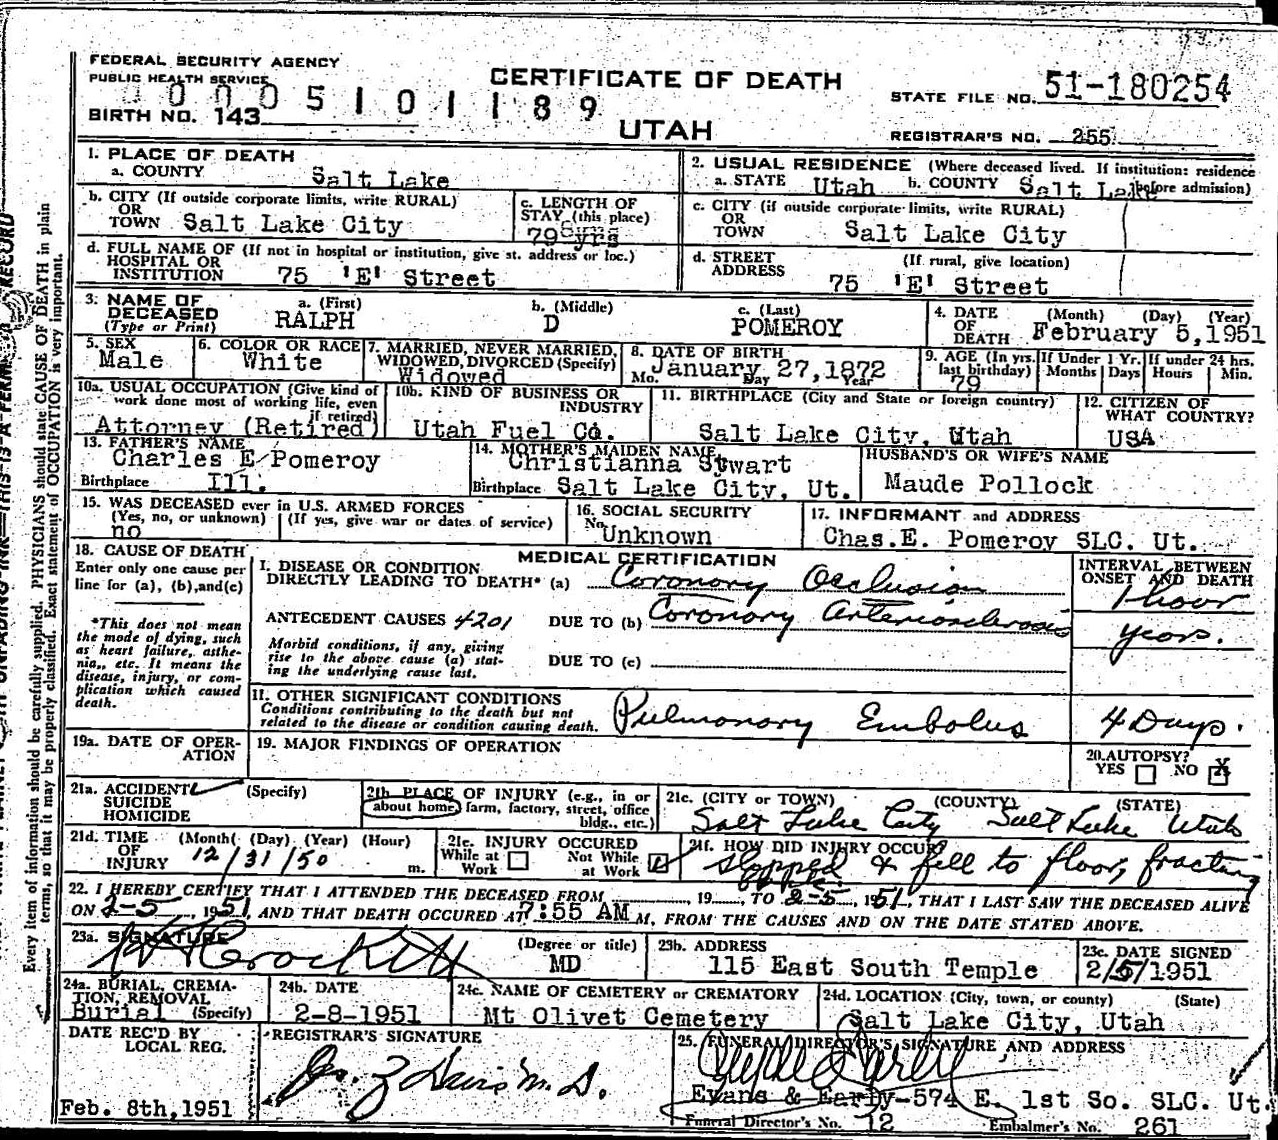 FEDERAL SECURITY AGENCY
PUBLIC HEALTH SERVICE
CERTIFICATE OF DEATH
STATE FILE NO. 51-180254
0005101189
BIRTH NO. 143
UTAH
REGISTRAR'S NO. 255
1. PLACE OF DEATH
a. COUNTY Salt Lake
2. USUAL RESIDENCE (Where deceased lived. If institution: residence before admission)
a. STATE Utah b. COUNTY Salt Lake
b. CITY (If outside corporate limits, write RURAL) OR TOWN Salt Lake City
c. LENGTH OF STAY (this place) 79 yrs
c. CITY (if outside corporate limits, write RURAL) OR TOWN Salt Lake City
d. FULL NAME OF (If not in hospital or institution, give st. address or loc.) HOSPITAL OR INSTITUTION 75 'E' Street
d. STREET ADDRESS (If rural, give location) 75 'E' Street
3. NAME OF DECEASED (Type or Print) a. (First) RALPH b. (Middle) D c. (Last) POMEROY
4. DATE OF DEATH (Month) (Day) (Year) February 5,1951
5. SEX Male
6. COLOR OR RACE White
7. MARRIED, NEVER MARRIED, WIDOWED, DIVORCED (Specify) Widowed
8. DATE OF BIRTH Mo. Day Year January 27,1872
9. AGE (In yrs. last birthday) 79
If Under 1 Yr. Months Days
If under 24 hrs. Hours Min.
10a. USUAL OCCUPATION (Give kind of work done most of working life, even if retired) Attorney (Retired)
10b. KIND OF BUSINESS OR INDUSTRY Utah Fuel Co.
11. BIRTHPLACE (City and State or foreign country) Salt Lake City, Utah
12. CITIZEN OF WHAT COUNTRY? USA
13. FATHER'S NAME Charles E Pomeroy
Birthplace Ill.
14. MOTHER'S MAIDEN NAME Christianna Stwart
Birthplace Salt Lake City, Ut.
HUSBAND'S OR WIFE'S NAME
Maude Pollock
15. WAS DECEASED ever in U.S. ARMED FORCES
(Yes, no, or unknown) (If yes, give war or dates of service)
no
16. SOCIAL SECURITY No. Unknown
17. INFORMANT and ADDRESS
Chas.E. Pomeroy SLC. Ut.
18. CAUSE OF DEATH
Enter only one cause per line for (a), (b),and(c)
*This does not mean the mode of dying, such as heart failure, asthenia,, etc. It means the disease, injury, or complication which caused death.
MEDICAL CERTIFICATION
INTERVAL BETWEEN ONSET AND DEATH
I. DISEASE OR CONDITION DIRECTLY LEADING TO DEATH* (a) Coronory Occlusion 1 hour
ANTECEDENT CAUSES 4201 DUE TO (b) Coronory arteriosclerosis years.
Morbid conditions, if any, giving rise to the above cause (a) stating the underlying cause last.
DUE TO (c)
II. OTHER SIGNIFICANT CONDITIONS
Conditions contributing to the death but not related to the disease or condition causing death.
Pulmonory Embolus 4 Days.
19a. DATE OF OPERATION
19. MAJOR FINDINGS OF OPERATION
20. AUTOPSY? YES NO X
21a. ACCIDENT SUICIDE HOMICIDE (Specify)
21b. PLACE OF INJURY (e.g., in or about home, farm, factory, street, office bldg., etc.)
21c. (CITY or TOWN) (COUNTY) (STATE)
Salt Lake City Salt Lake Utah
21d. TIME OF INJURY (Month) (Day) (Year) (Hour) 12/31/50 m.
21e. INJURY OCCURED While at Work Not While at Work
21f. HOW DID INJURY OCCUR? slipped & fell to floor, fracturing
22. I HEREBY CERTIFY THAT I ATTENDED THE DECEASED FROM 19 , TO 2-5, 1951, THAT I LAST SAW THE DECEASED ALIVE
ON 2-5, 1951, AND THAT DEATH OCCURED AT 7:55 AM M., FROM THE CAUSES AND ON THE DATE STATED ABOVE.
23a. SIGNATURE Crockett (Degree or title) MD
23b. ADDRESS 115 East South Temple
23c. DATE SIGNED 2/5/1951
24a. BURIAL, CREMATION, REMOVAL (Specify) Burial
24b. DATE 2-8-1951
24c. NAME OF CEMETERY or CREMATORY Mt Olivet Cemetery
24d. LOCATION (City, town, or county) (State) Salt Lake City, Utah
DATE REC'D BY LOCAL REG.
Feb. 8th,1951
REGISTRAR'S SIGNATURE
Jos. Z Davis M.D.
25. FUNERAL DIRECTOR'S SIGNATURE AND ADDRESS
Evans & Early-574 E. 1st So. SLC. Ut.
Funeral Director's No. 12 Embalmer's No. 261
Every item of information should be carefully supplied. PHYSICIANS should state CAUSE OF DEATH in plain
terms, so that it may be properly classified. Exact statement of OCCUPATION is very important.
UNFADING INK—THIS IS A PERMANENT RECORD